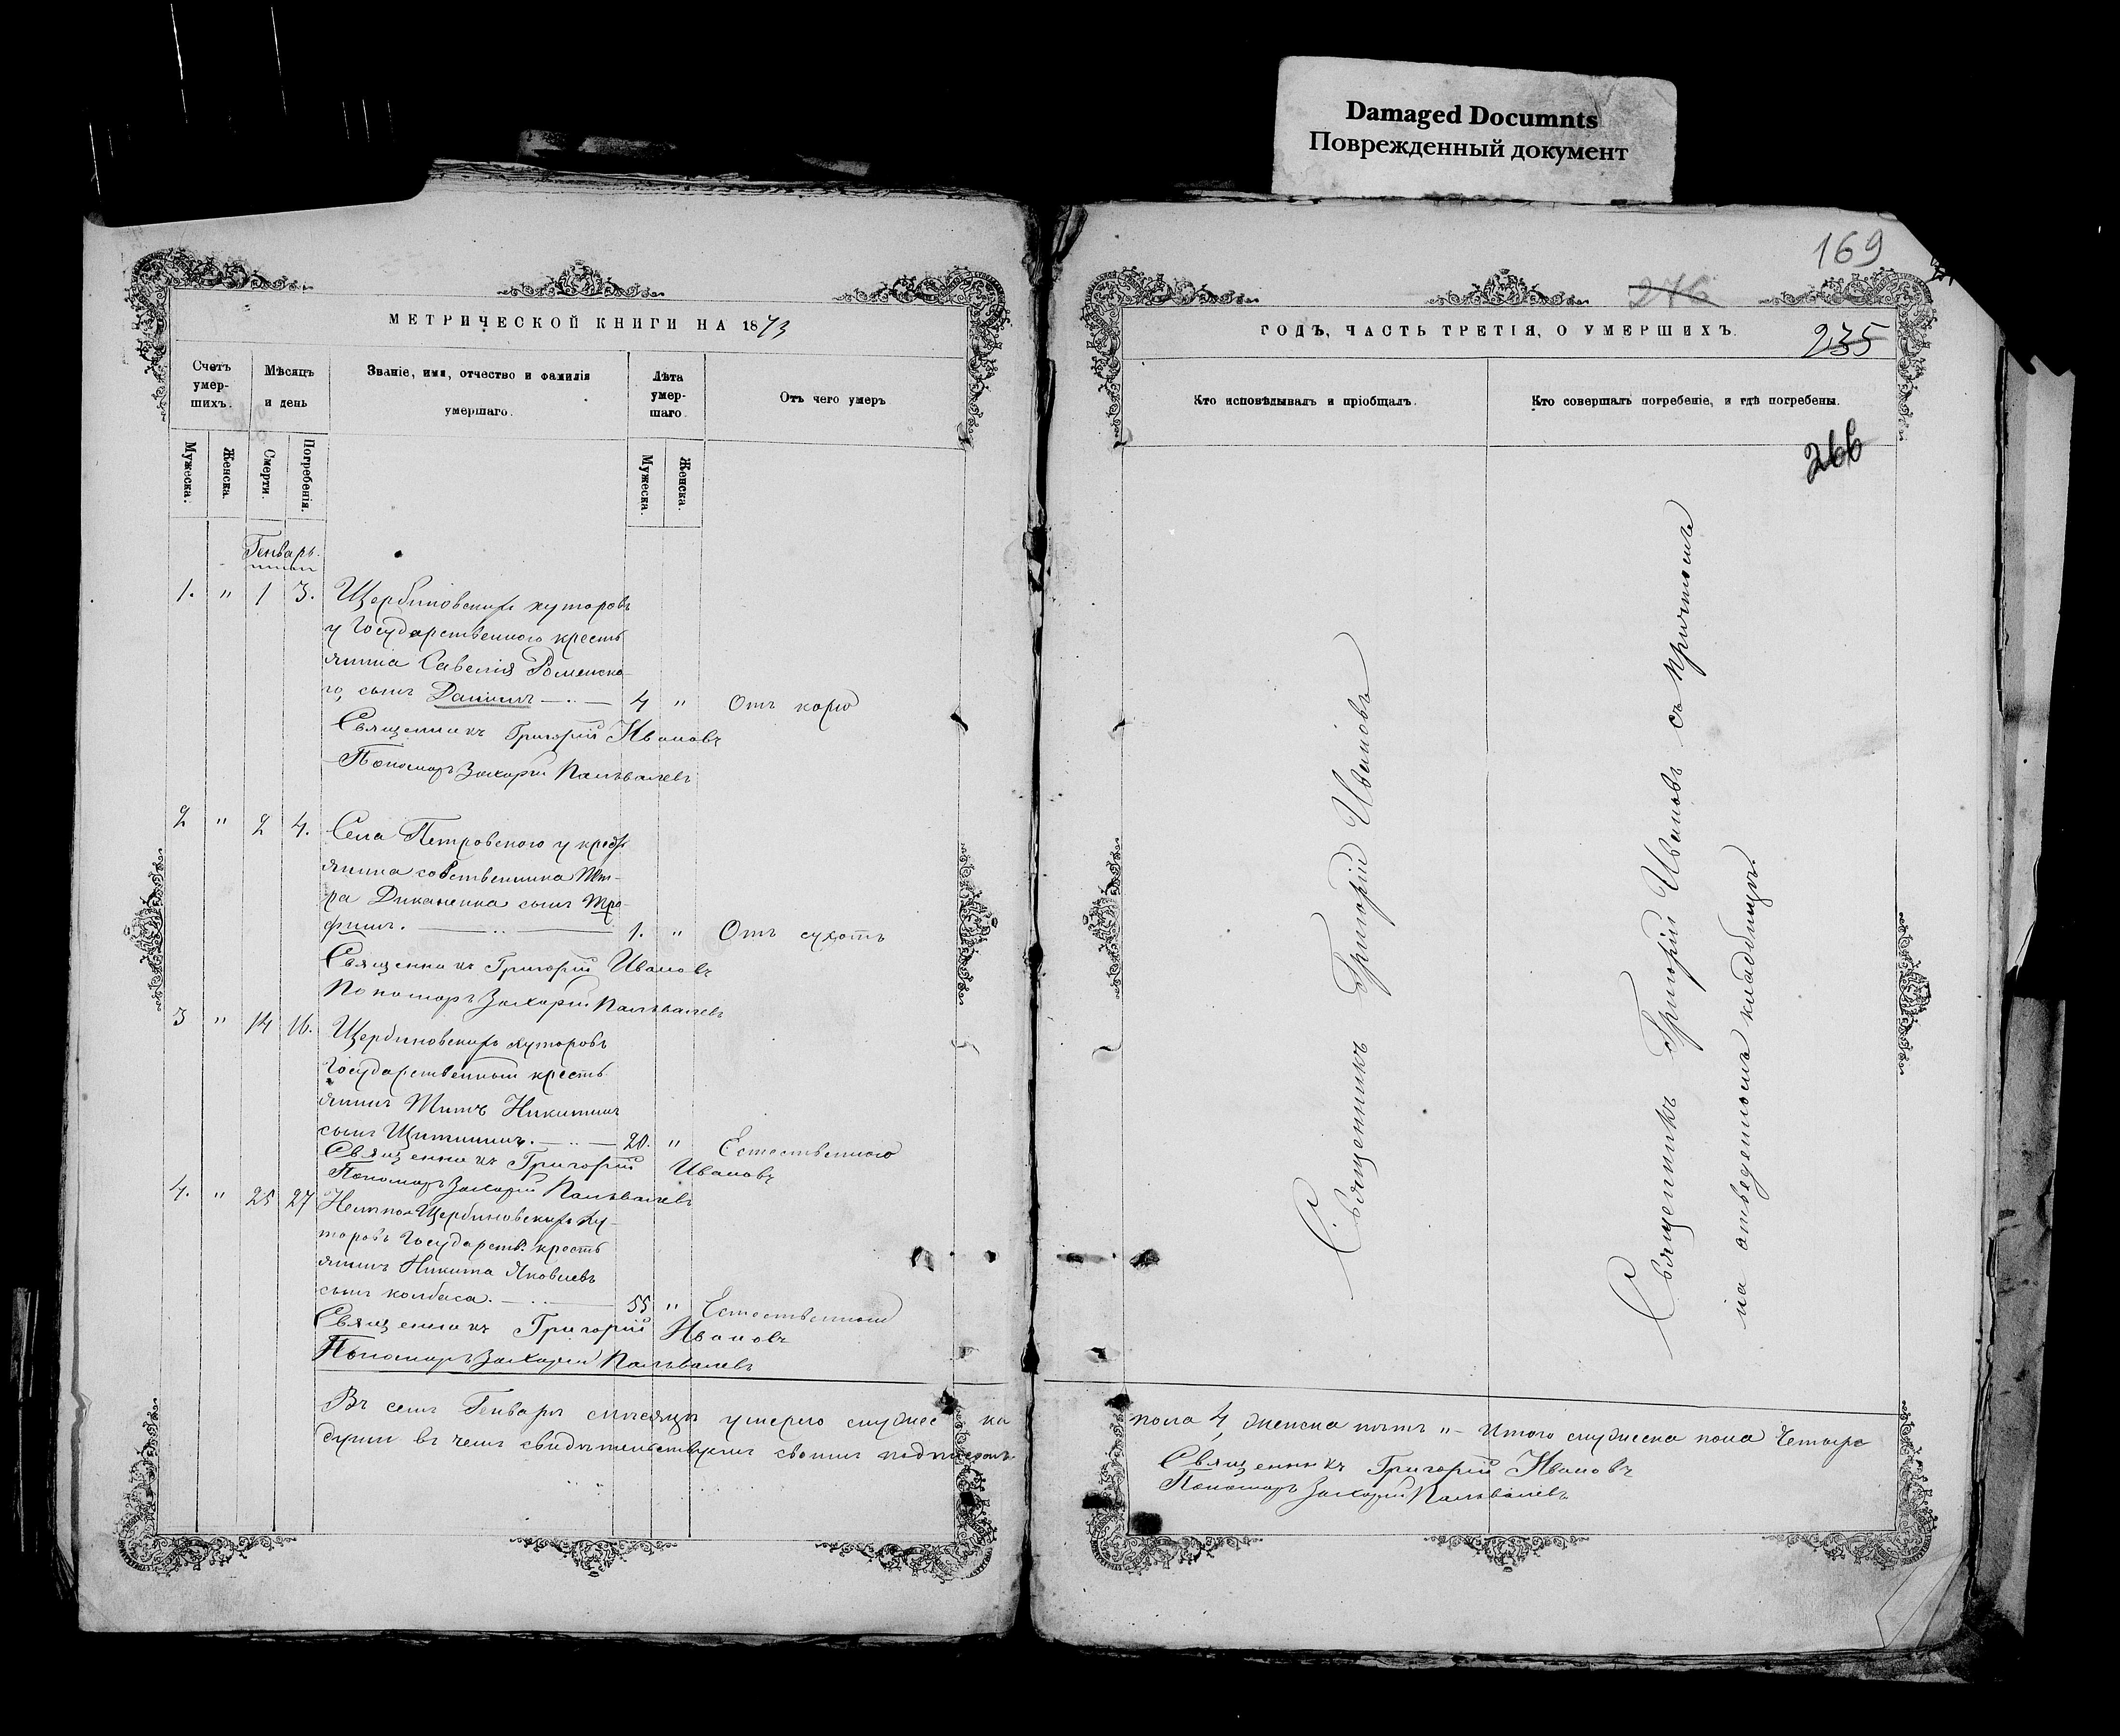 Damaged Documnts
Поврежденный документ
МЕТРИЧЕСКОЙ КНИГИ НА 1873
Счетъ умер-шихъ.
Мѣсяцъ и день
Званіе, имя, отчество и фамилія умершаго.
Лѣта умер-шаго.
Отъ чего умеръ
Мужеска.
Женска.
Смерти.
Погребенія.
Мужеска.
Женска.
Генварь.
1. " 1 3. Щербиновскихъ хуторовъ
у Государственного кресть
янина Савелія Роменска-
го, сынъ Даніилъ 4 " Отъ кори
Священникъ Григорій Ивановъ
Пономарь Захарій
2 " 2 4. Села Петровского у кресть
янина собственника Пет-
ра Диканенка сынъ Тро-
фимъ. 1. " Отъ сухотъ
Священникъ Григорій Ивановъ
Пономарь Захарій
3 " 14 16. Щербиновскихъ хуторовъ
Государственный кресть
янинъ Титъ Никитинъ
сынъ 20. " Естественно
Священникъ Григорій Ивановъ
Пономарь Захарій
4. " 25 27 Щербиновскихъ ху-
торовъ Государств. кресть
янинъ Никита Яковлевъ
сынъ колбаса. 55 " Естественно
Священникъ Григорій Ивановъ
Пономарь Захарій
Въ семъ Генварѣ мѣсяцѣ умерло мужеска
души въ чемъ свидѣтельствуемъ своимъ подписомъ
169
276
ГОДЪ, ЧАСТЬ ТРЕТІЯ, О УМЕРШИХЪ.
235
Кто исповѣдывалъ и пріобщалъ.
Кто совершалъ погребеніе, и гдѣ погребены.
266
Священникъ Григорій Ивановъ
Священникъ Григорій Ивановъ съ причтомъ
на отведенномъ кладбищѣ.
пола 4, женска нѣтъ " - Итого мужеска пола Четыре
Священникъ Григорій Ивановъ
Пономарь Захарій